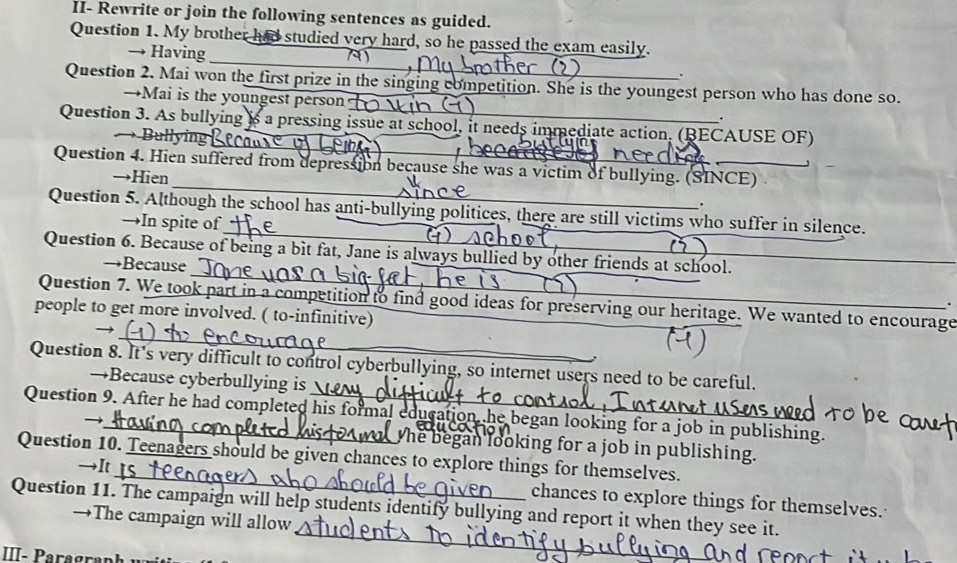 II- Rewrite or join the following sentences as guided.
Question 1. My brother had studied very hard, so he passed the exam easily.
→ Having (1) , My brother (2) .
Question 2. Mai won the first prize in the singing competition. She is the youngest person who has done so.
→Mai is the youngest person to win (1) .
Question 3. As bullying is a pressing issue at school, it needs immediate action. (BECAUSE OF)
→ Bullying Because of being , bullying needing
Question 4. Hien suffered from depression because she was a victim of bullying. (SINCE)
→Hien since .
Question 5. Although the school has anti-bullying politices, there are still victims who suffer in silence.
→In spite of the (1) school, (2)
Question 6. Because of being a bit fat, Jane is always bullied by other friends at school.
→Because Jane was a big fat, he is (1) .
Question 7. We took part in a competition to find good ideas for preserving our heritage. We wanted to encourage
people to get more involved. ( to-infinitive) (-1)
→ (-1) to encourage .
Question 8. It's very difficult to control cyberbullying, so internet users need to be careful.
→Because cyberbullying is very difficult to control, Internet users need to be
Question 9. After he had completed his formal education, he began looking for a job in publishing.
→ Having completed his formal education he began looking for a job in publishing.
Question 10. Teenagers should be given chances to explore things for themselves.
→It is teenagers who should be given chances to explore things for themselves.
Question 11. The campaign will help students identify bullying and report it when they see it.
→The campaign will allow students to identify bullying and report it
III- Paragraph